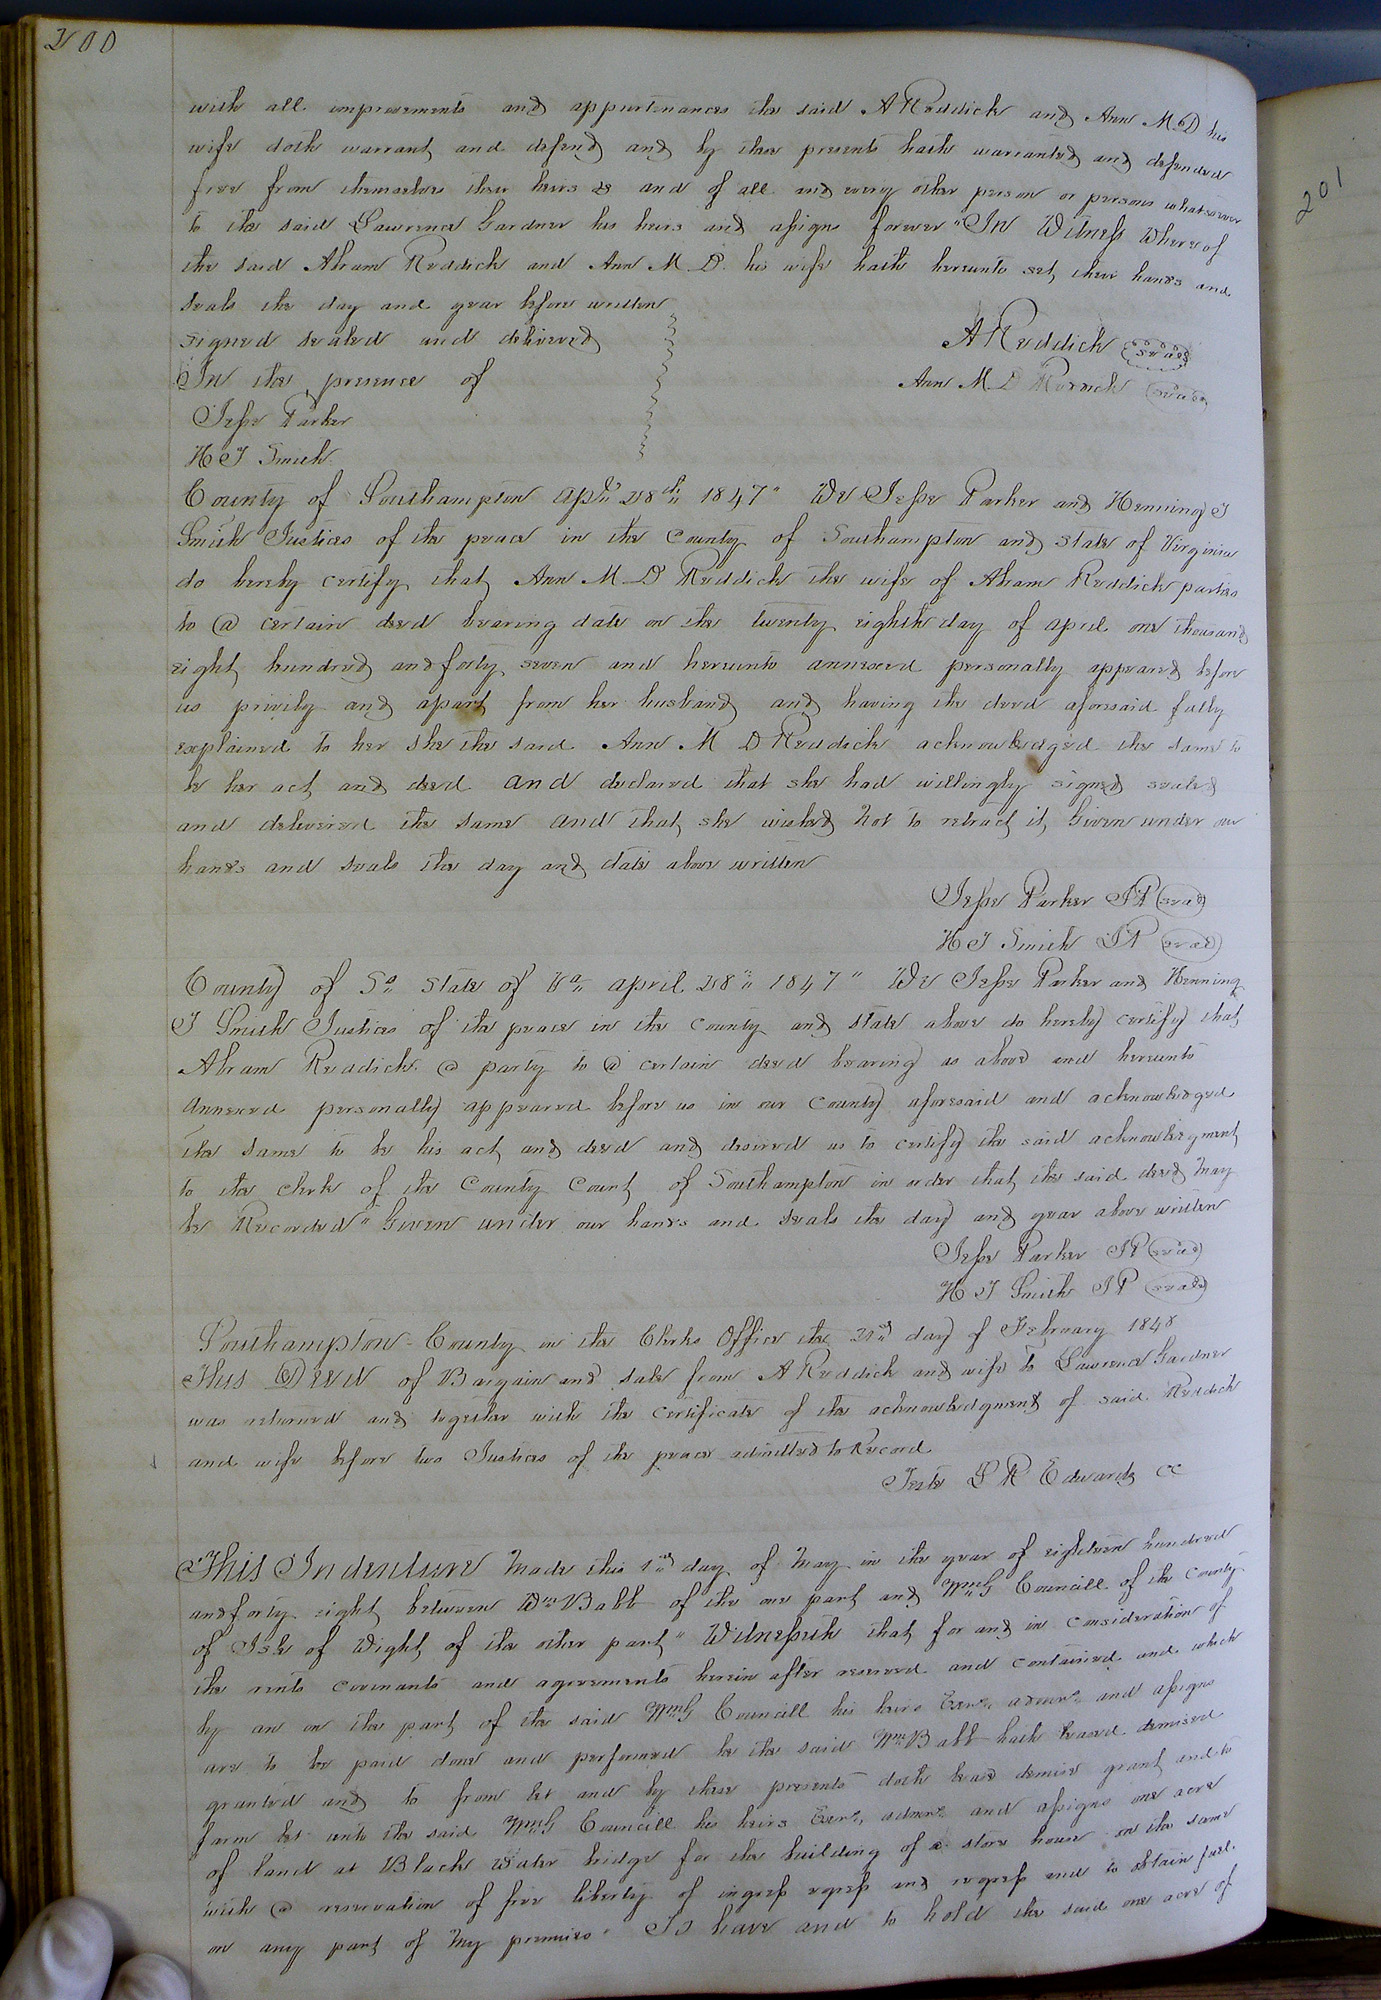 200
with all improvements and appurtinances the said A Reddick and Ann M D his
wife doth warrant and defend and by these presents hath warranted and defended
free from themselves their heirs &c and of all and every other person or persons whatsoever
to the said Lawrence Gardner his heirs and assigns forever "In Witness Whereof
the said Abram Reddick and Ann M. D. his wife hath hereunto set their hands and
seals the day and year before written
signed sealed and delivered
In the presence of
A Reddick (seal)
Ann M D Reddick (seal)
Jesse Parker
H J Smith
County of Southampton April 28th 1847" We Jesse Parker and Henning J
Smith Justices of the peace in the County of Southampton and State of Virginia
do hereby certify that Ann M D Reddick the wife of Abram Reddick parties
to a certain deed bearing date on the twenty eighth day of april one thousand
eight hundred and forty seven and hereunto annexed personally appeared before
us privily and apart from her husband and having the deed aforesaid fully
explained to her she the said Ann M D Reddick acknowledged the same to
be her act and deed and declared that she had willingly signed sealed
and delivered the same and that she wished not to retract it, Given under our
hands and seals the day and date above written
Jesse Parker JP (seal)
H J Smith JP (seal)
County of So State of Va april 28" 1847" We Jesse Parker and Henning
J Smith Justices of the peace in the County and state above do hereby certify that
Abram Reddick a party to a certain deed bearing as above and hereunto
Annexed personally appeared before us in our County aforesaid and acknowledged
the same to be his act and deed and desired us to certify the said acknowlegment
to the clerk of the County Court of Southampton in order that the said deed May
be Recorded" Given under our hands and seals the day and year above written
Jesse Parker JP (seal)
H J Smith JP (seal)
Southampton County in the Clerks Office the day of February 1848
This Deed of Bargain and sale from A Reddick and wife to Lawrence Gardner
was returned and together with the certificate of the acknowledgment of said Reddick
and wife before two Justices of the peace admitted to Record
Teste L R Edwards CC
This Indenture Made this 1st day of May in the year of eighteen hundred
and forty eight between Wm Babb of the one part and Wm G Councill of the County
of Isle of Wight of the other part" Witnesseth that for and in consideration of
the rents covenants and agreements herein after reserved and contained and which
by an on the part of the said Wm G Councill his heirs Exrs, admrs and assigns
are to be paid done and performed he the said Wm Babb hath leased demised
granted and to from let and by these presents doth lease demise grant and to
farm let unto the said Wm G Councill his heirs Exrs, admrs and assigns one acre
of land at Black Water bridge for the building of a store house on the same
with a reservation of free liberty of ingress egress and regress and to obtain fuel
on any part of My premises" To have and to hold the said one acre of
201